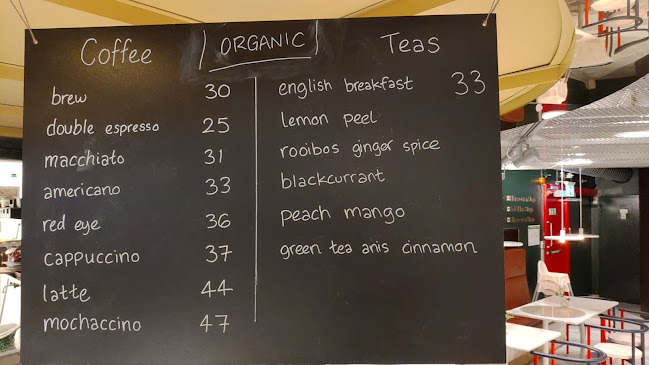 Coffee
ORGANIC
Teas
brew 30
double espresso 25
macchiato 31
americano 33
red eye 36
cappuccino 37
latte 44
mochaccino 47
english breakfast 33
lemon peel
rooibos ginger spice
blackcurrant
peach mango
green tea anis cinnamon